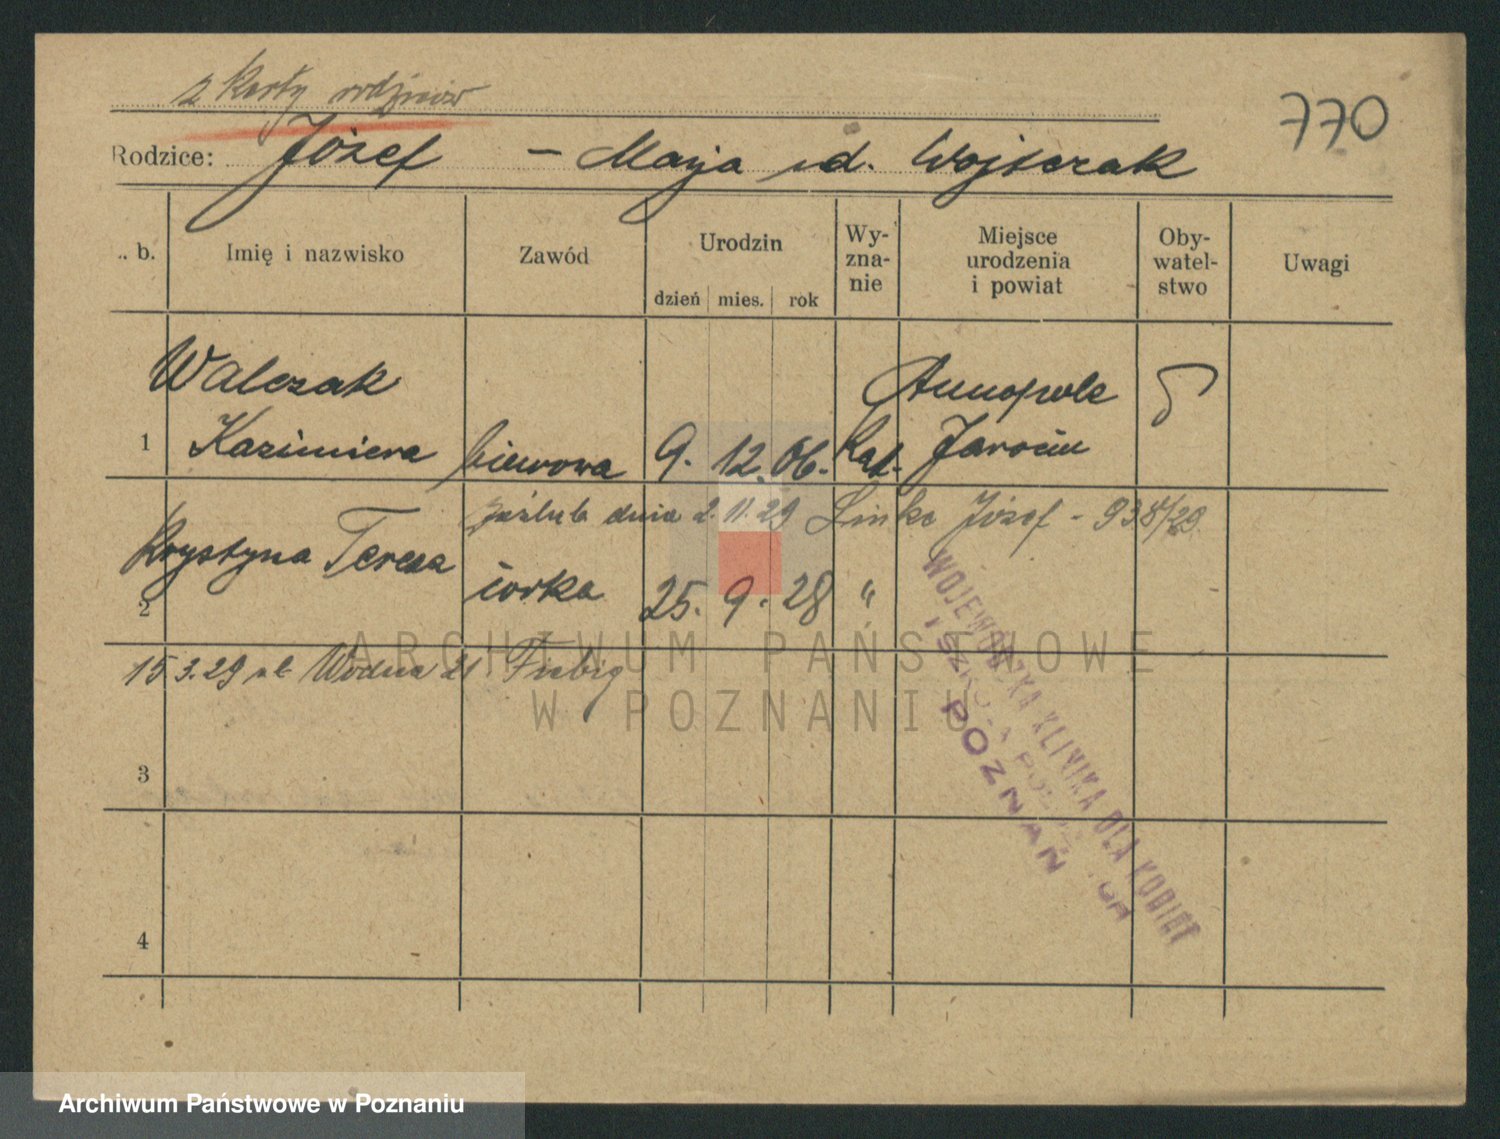 z karty rodziców
770
Rodzice: Józef – Marja ud. Wojtczak
. b. Imię i nazwisko Zawód Urodzin dzień mies. rok Wy-zna-nie Miejsce urodzenia i powiat Oby-watel-stwo Uwagi
Walczak Annopole
1 Kazimiera biurowa 9. 12. 06. Kat. Jarocin
zaślub dnia 2.11.29 Linke Józef - 938/29
2 Krystyna Teresa córka 25. 9. 28 "
15 3.29 ul. Wodna 21 Fiebig
3
4
WOJEWÓDZKA KLINIKA DLA KOBIET
I SZKOŁA
POZNAŃ
ARCHIWUM PAŃSTWOWE
W POZNANIU
Archiwum Państwowe w Poznaniu